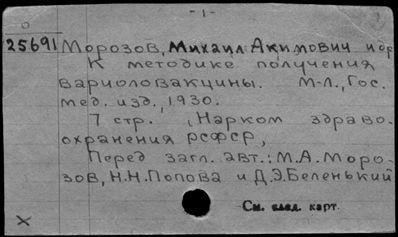 - 1 -
25691 Морозов, Михаил Акимович и др
К методике получения
вариоловакцины. М-Л., Гос.
мед. изд., 1930.
7 стр. , Нарком здраво-
охранения РСФСР,
Перед загл. авт.: М.А. Моро-
зов, Н.Н. Попова и Д.Э. Беленький
См. след. карт.